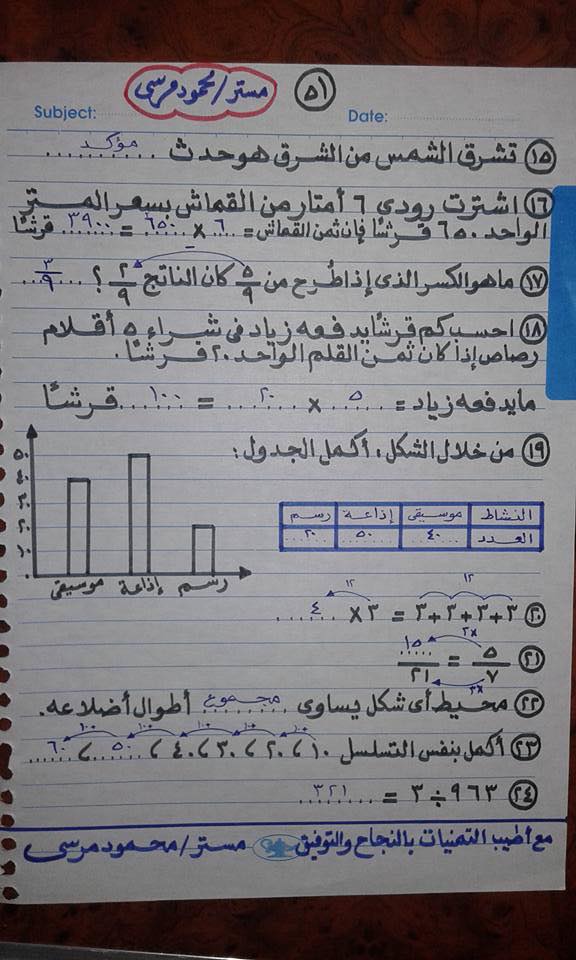 ٥١ مستر/محمود مرسى
Subject: Date:
١٥ تشرق الشمس من الشرق هو حدث مؤكد
١٦ اشترت رودى ٦ أمتار من القماش بسعر المتر
الواحد ٦٥٠ قرشًا فإن ثمن القماش = ٦ × ٦٥٠ = ٣٩٠٠ قرشًا
١٧ ماهو الكسر الذى إذا طُرح من ٥/٩ كان الناتج ٢/٩ ؟ ٣/٩
١٨ احسب كم قرشًا يدفعه زياد فى شراء ٥ أقلام
رصاص إذا كان ثمن القلم الواحد ٢٠ قرشًا.
مايدفعه زياد = ٥ × ٢٠ = ١٠٠ قرشًا
١٩ من خلال الشكل، أكمل الجدول:
٥٠
٤٠
٣٠
٢٠
١٠
٠
موسيقى إذاعة رسم
النشاط موسيقى إذاعة رسم
العدد ٤٠ ٥٠ ٢٠
١٢ ١٢
٢٠ ٣+٣+٣+٣ = ٣ × ٤
٢١ ٥/٧ = ١٥/٢١
٣× ٣×
٢٢ محيط أى شكل يساوى مجموع أطوال أضلاعه.
١٠+ ١٠+ ١٠+ ١٠+ ١٠+
٢٣ أكمل بنفس التسلسل ١٠، ٢٠، ٣٠، ٤٠، ٥٠، ٦٠
٢٤ ٩٦٣ ÷ ٣ = ٣٢١
مع أطيب التمنيات بالنجاح والتوفيق مستر/محمود مرسى